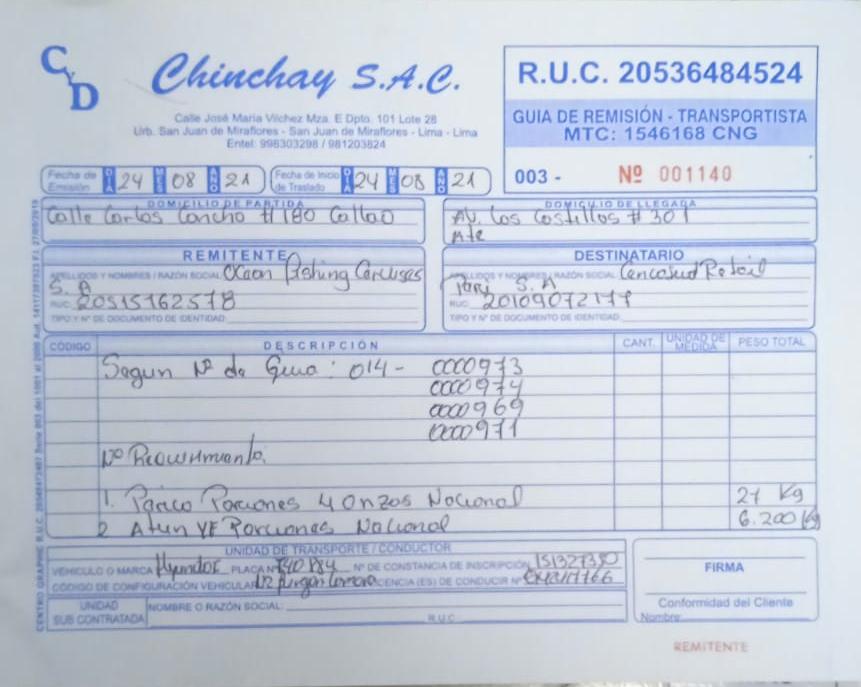 CyD
Chinchay S.A.C.
Calle José María Vilchez Mza. E Dpto. 101 Lote 28
Urb. San Juan de Miraflores - San Juan de Miraflores - Lima - Lima
Entel: 998303298 / 981203824
R.U.C. 20536484524
GUIA DE REMISIÓN - TRANSPORTISTA
MTC: 1546168 CNG
003 - Nº 001140
Fecha de Emisión DIA 24 MES 08 AÑO 21
Fecha de Inicio de Traslado DIA 24 MES 08 AÑO 21
DOMICILIO DE PARTIDA
Calle Carlos Concho # 180 Callao
DOMICILIO DE LLEGADA
AV. Los Costillos # 301
Ate
REMITENTE
APELLIDOS Y NOMBRES / RAZÓN SOCIAL: Ocean Fishing
S. A
RUC: 20515162578
TIPO Y Nº DE DOCUMENTO DE IDENTIDAD:
DESTINATARIO
APELLIDOS Y NOMBRES / RAZÓN SOCIAL: Cencosud Retail
S. A
RUC: 20109072177
TIPO Y Nº DE DOCUMENTO DE IDENTIDAD:
CÓDIGO DESCRIPCIÓN CANT. UNIDAD DE MEDIDA PESO TOTAL
Segun Nº de Guia : 014- 0000973
0000974
0000969
0000971
Nº Requirimiento.
1. Perico Porciones 4 Onzas Nacional 27 Kg
2 Atun YF Porciones Nacional 6.200 Kg
UNIDAD DE TRANSPORTE / CONDUCTOR
VEHICULO O MARCA PLACA Nº Nº DE CONSTANCIA DE INSCRIPCIÓN 151327350
CÓDIGO DE CONFIGURACIÓN VEHICULAR LICENCIA (ES) DE CONDUCIR Nº
UNIDAD SUB CONTRATADA
NOMBRE O RAZÓN SOCIAL:
R.U.C.
FIRMA
Conformidad del Cliente
Nombre:
REMITENTE